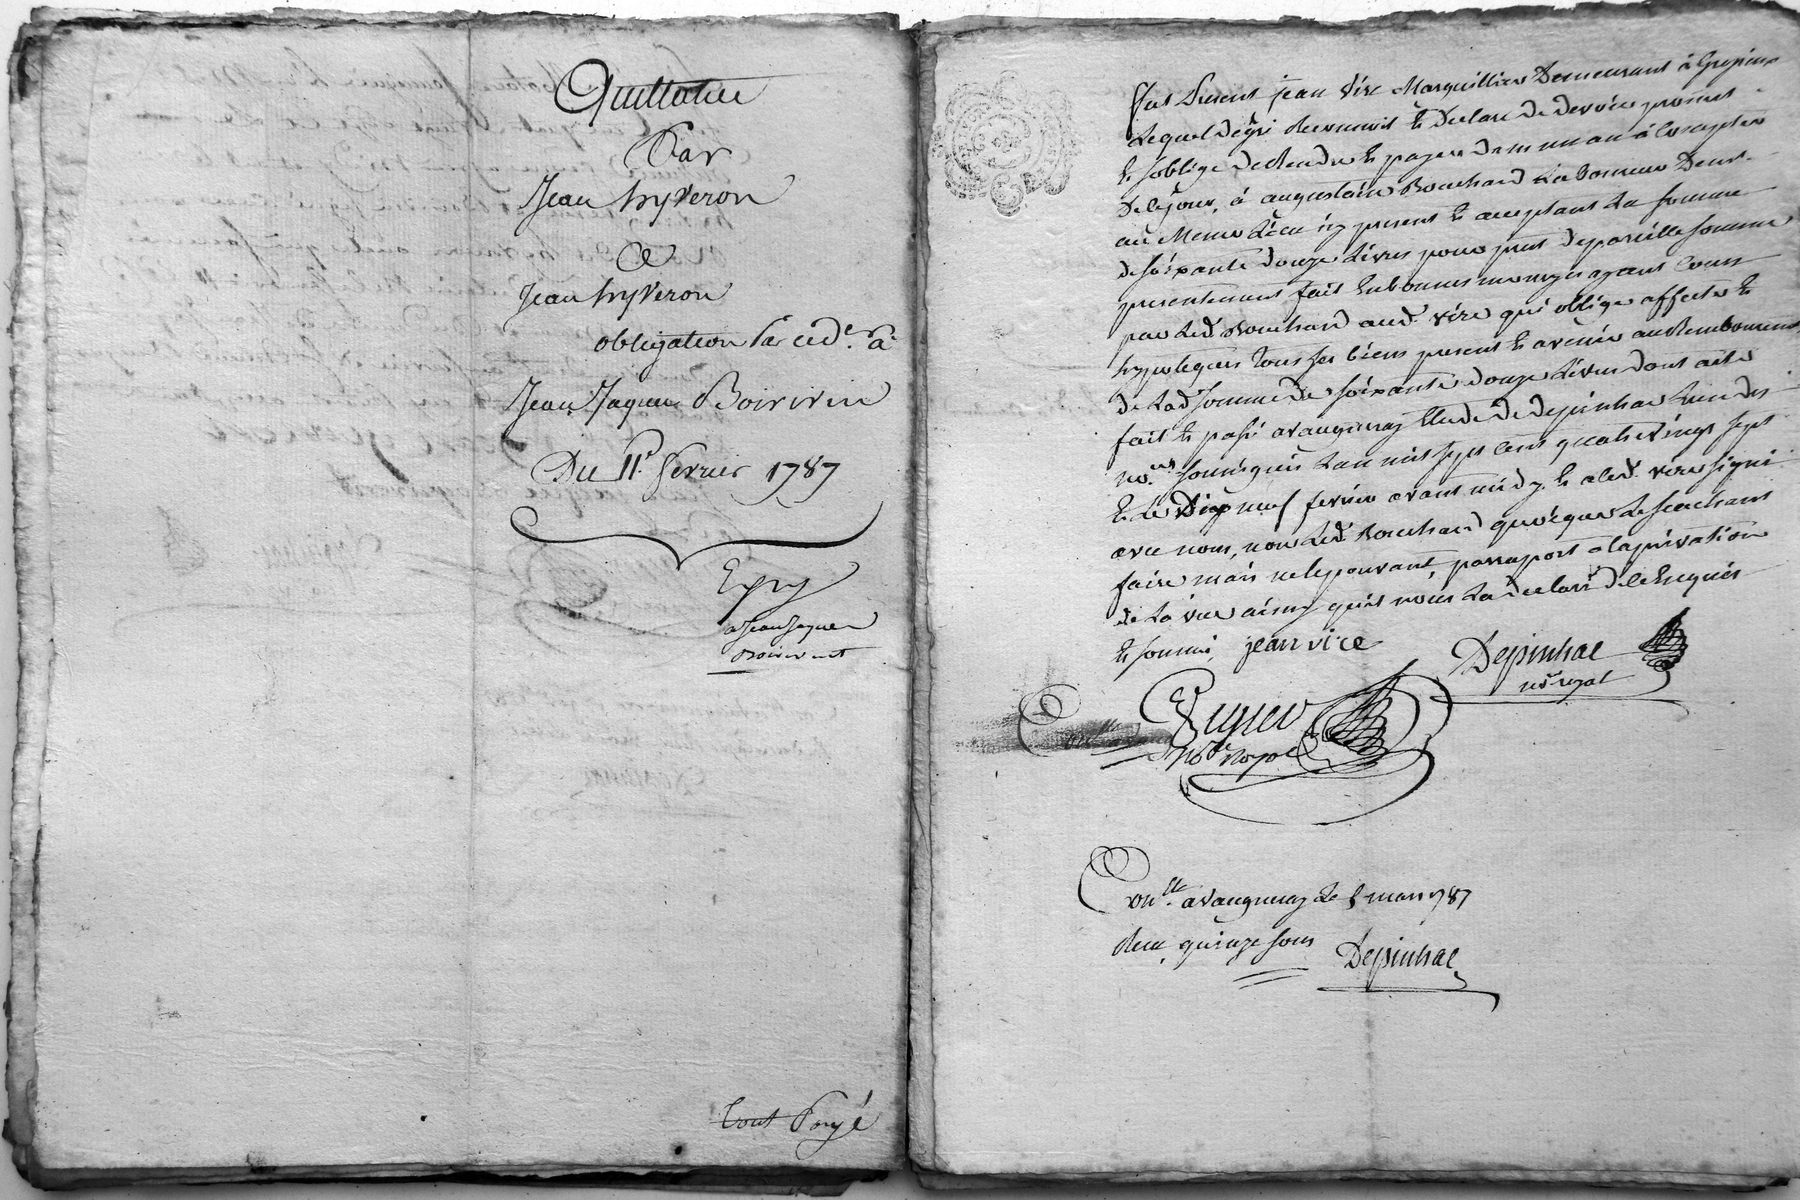 Quittance
Par
Jean hyVeron
a
Jean hyVeron
obligation Par ced.t a
Jean Jaques Boivivin
Du 11.e fevrier 1787
Expy
a Jean Jaques
Boivivent
tout Payé
fut present jean Vire Marguillier Demeurant à
Lequel de gré Reconnoit et Declare De devoir promet
et soblige de Rendre et payer Dans un an à Compter
De ce jour, à augustain Bouchard Laboureur Deurt
au Meme Lieu icy present et acceptant La somme
de soixante douze Livres pour pret de pareille somme
presentement fait En bonnes monoyes ayant Cours
par Led.t Bouchard aud.t vire qui oblige affecte et
hypoteque tous ses biens present et avenir au Remboursement
de Lad.e somme De soixante douze Livres dont acte
fait et passé a vaugneray Etude De Depinhac L'un des
no.res soussignés L'an mil sept cent quatre vingt sept
Et Le Dix neuf fevrier avant midy. Et a Led.t vire signé
avec nous, non Led.t Bouchard quoique Le sçachant
faire mais ne le pouvant, par raport à la privation
de La vue ainsy qu'il nous L'a declaré De ce Enquis
et sommé, jean vire
Depinhac
no.re royal
no.re Royal
Con.lle a Vaugneray Le 5 mars 1787
Recu quinze sous
Depinhac